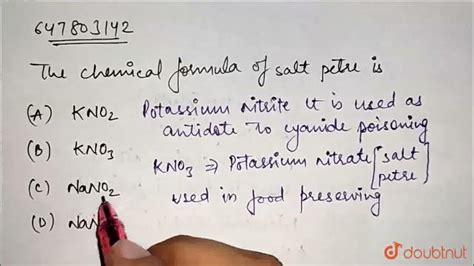 647803142
The chemical formula of salt petre is
(A) KNO2 Potassium nitrite It is used as
antidote to cyanide poisoning
(B) KNO3
KNO3 ⇒ Potassium nitrate [salt petre]
(C) NaNO2
used in food preserving
(D) NaN
doubtnut